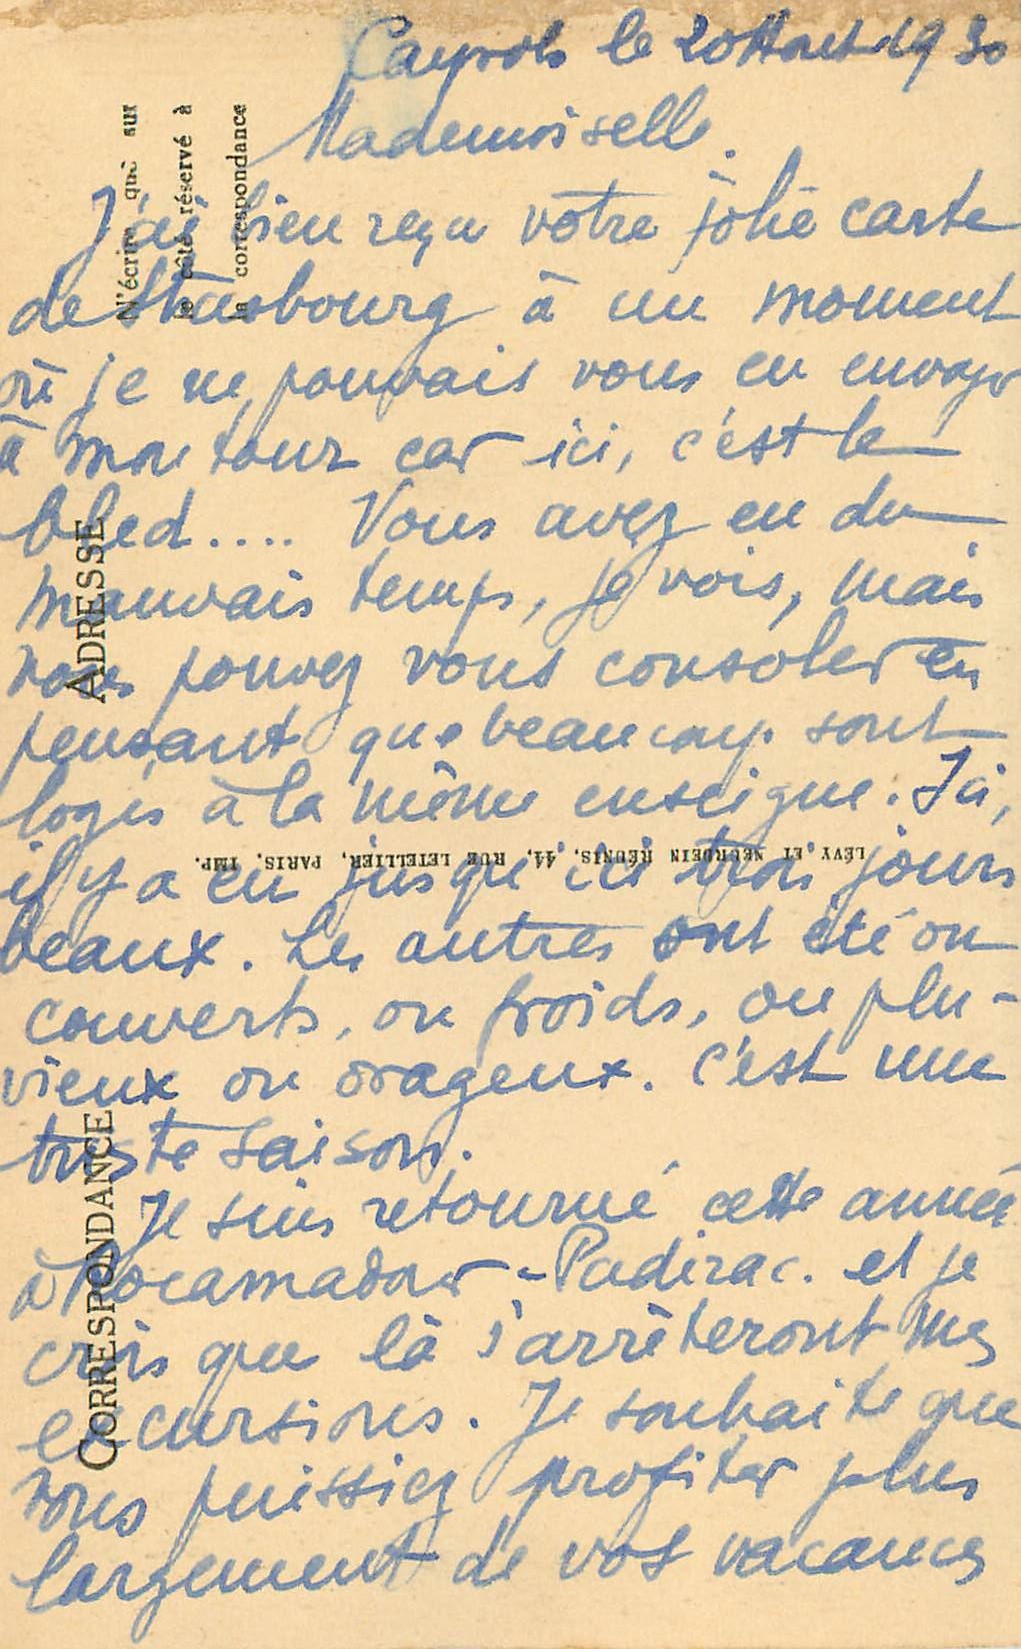 Cayrols le 20 Aout 1930
Mademoiselle.
J'ai bien reçu votre jolie carte
de Strasbourg à un moment
où je ne pouvais vous en envoyer
à mon tour car ici, c'est le
bled.... Vous avez eu du
mauvais temps, je vois, mais
vous pouvez vous consoler en
pensant que beaucoup sont
logés à la même enseigne. Ici,
il y a eu jusqu'ici trois jours
beaux. Les autres ont été ou
couverts, ou froids, ou plu-
vieux ou orageux. C'est une
triste saison.
Je suis retourné cette année
à Rocamadour - Padirac. et je
crois que là s'arrêteront mes
excursions. Je souhaite que
vous puissiez profiter plus
largement de vos vacances
N'écrire que sur
le côté réservé à
la correspondance
ADRESSE
CORRESPONDANCE
LÉVY ET NEURDEIN RÉUNIS, 44, RUE LETELLIER, PARIS. IMP.